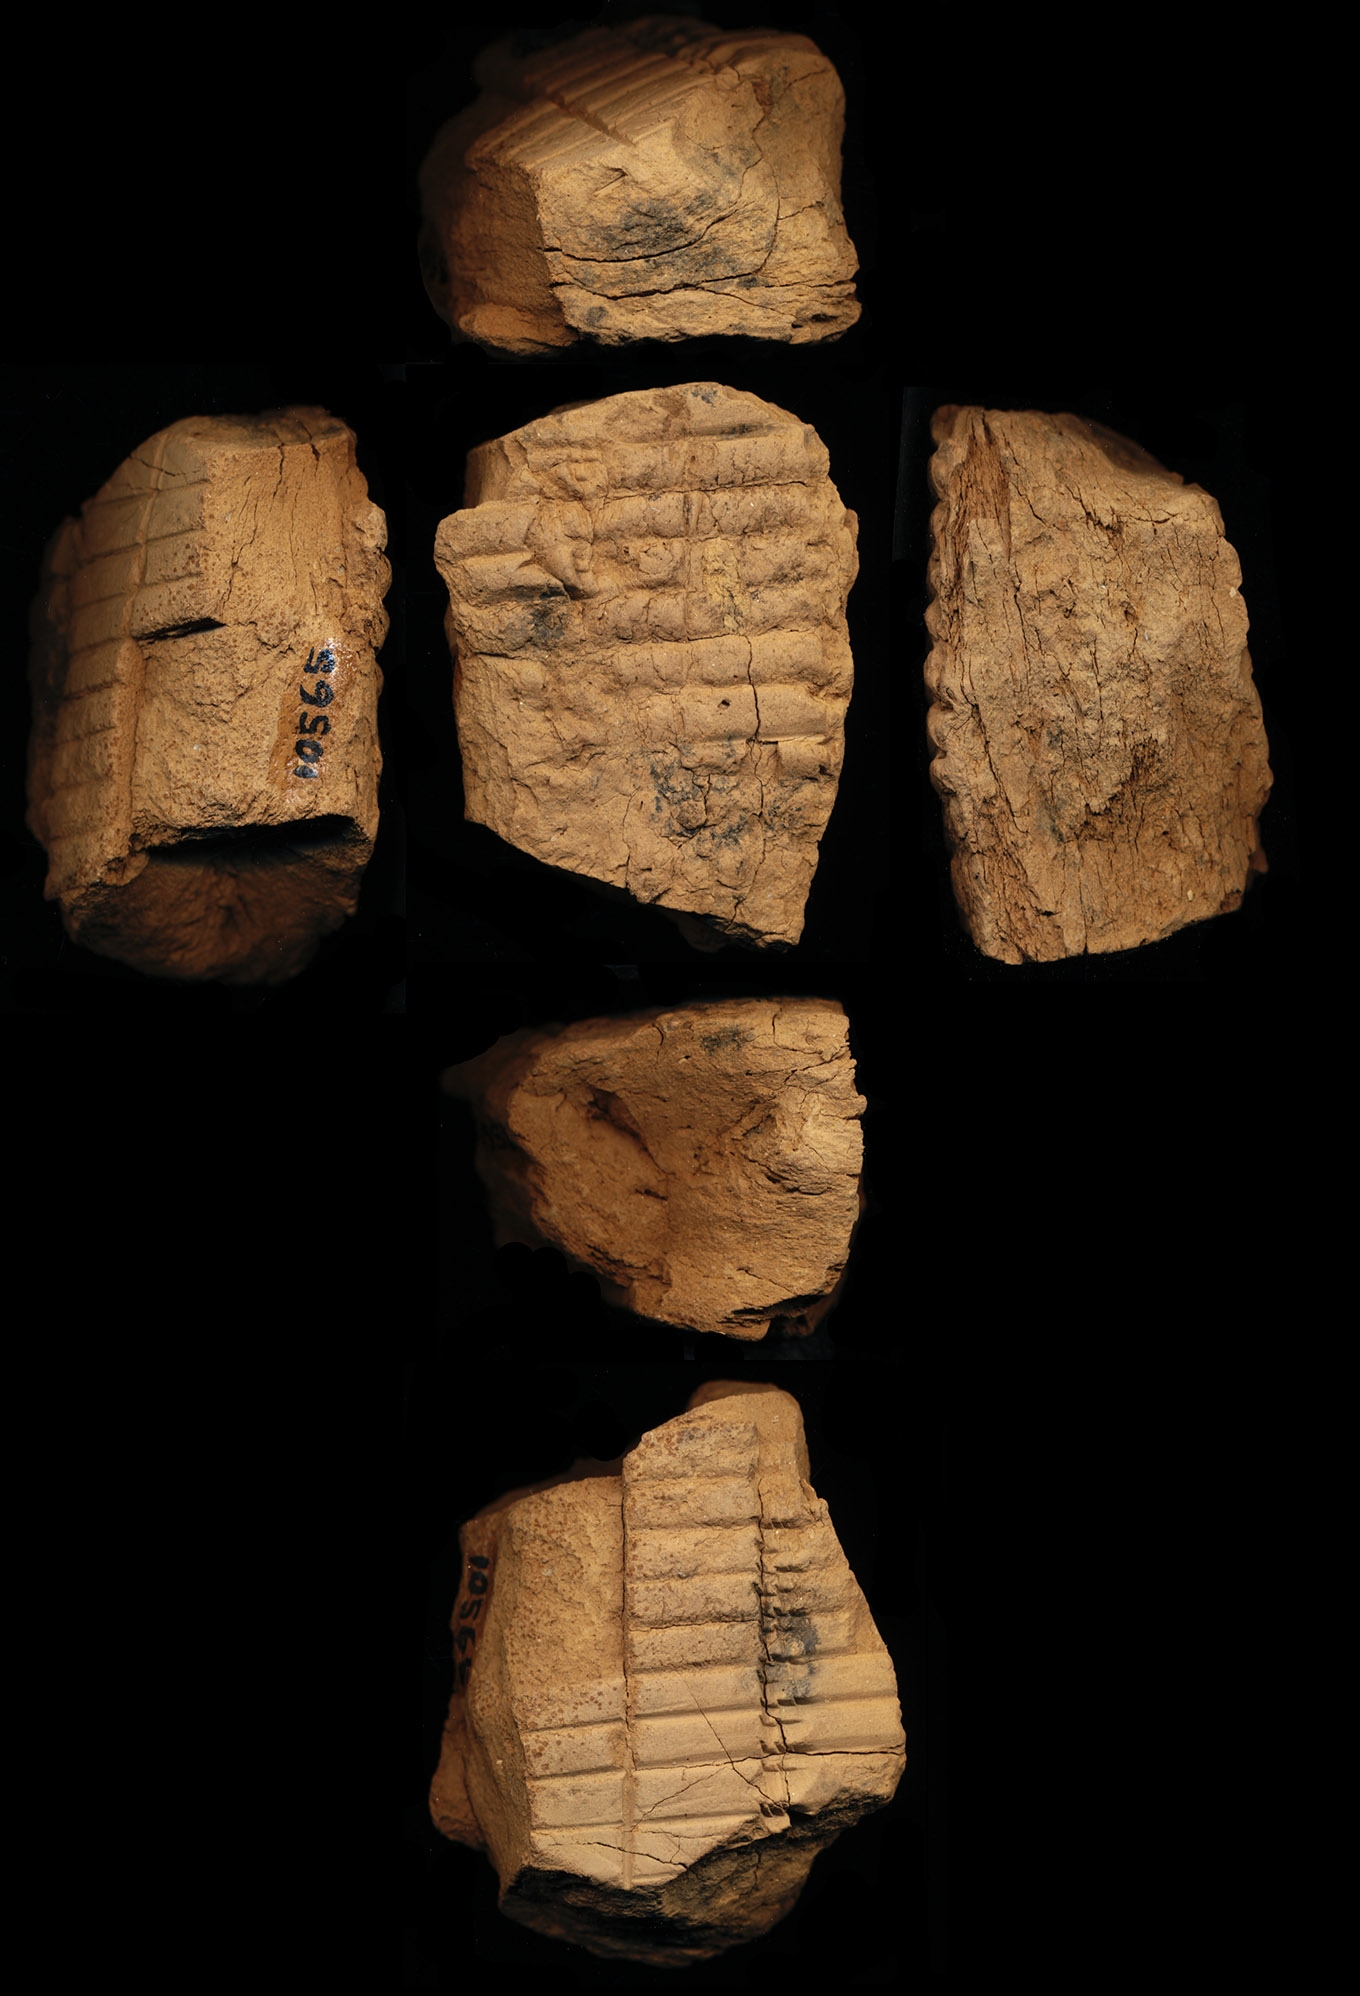 10565
10565